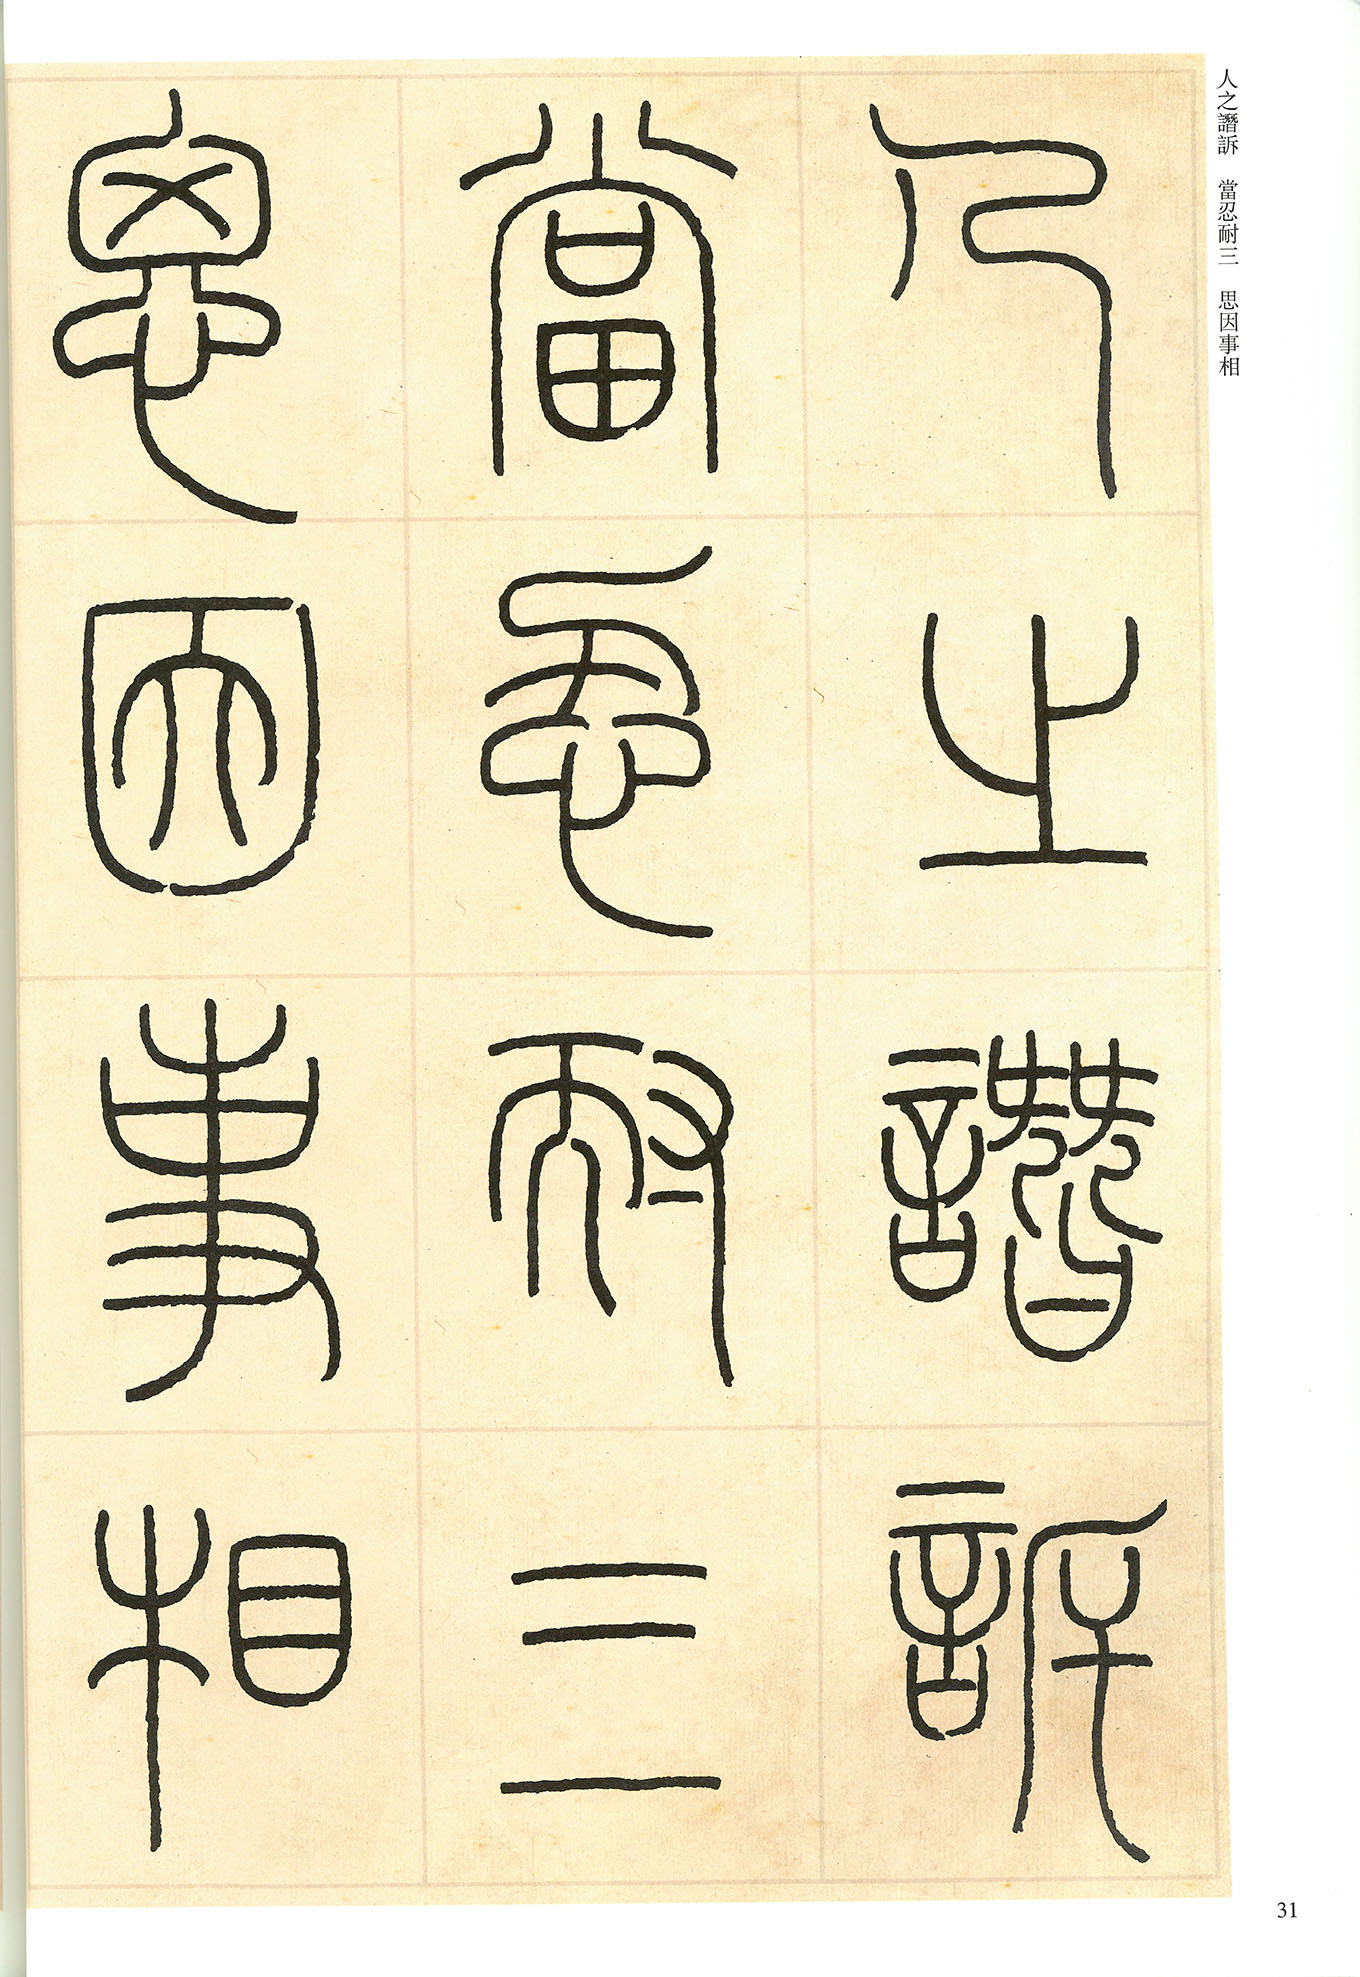 人之譖訴　當忍耐三　思因事相
人之譖訴
當忍耐三
思因事相
31